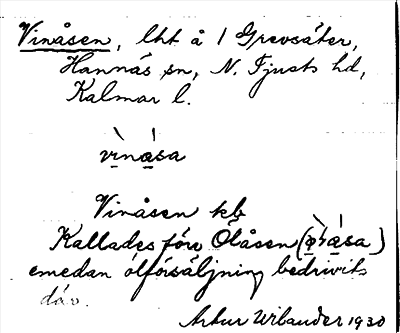 Vinåsen, lht å 1 Grevsäter,
Hannäs sn, N. Tjusts hd,
Kalmar l.
vìnåsa
Vinåsen kb
Kallades förr Ölåsen (ø̀låsa)
emedan ölförsäljning bedrivits
där.
Artur Wilander 1930